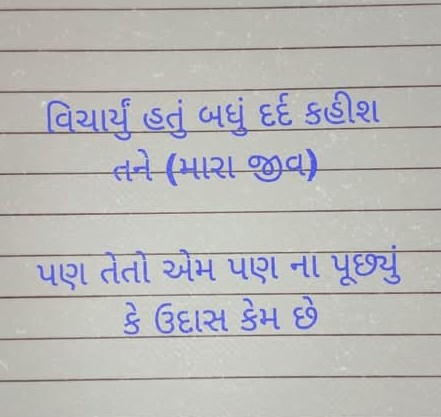 વિચાર્યું હતું બધું દર્દ કહીશ
તને (મારા જીવ)
પણ તેતો એમ પણ ના પૂછ્યું
કે ઉદાસ કેમ છે